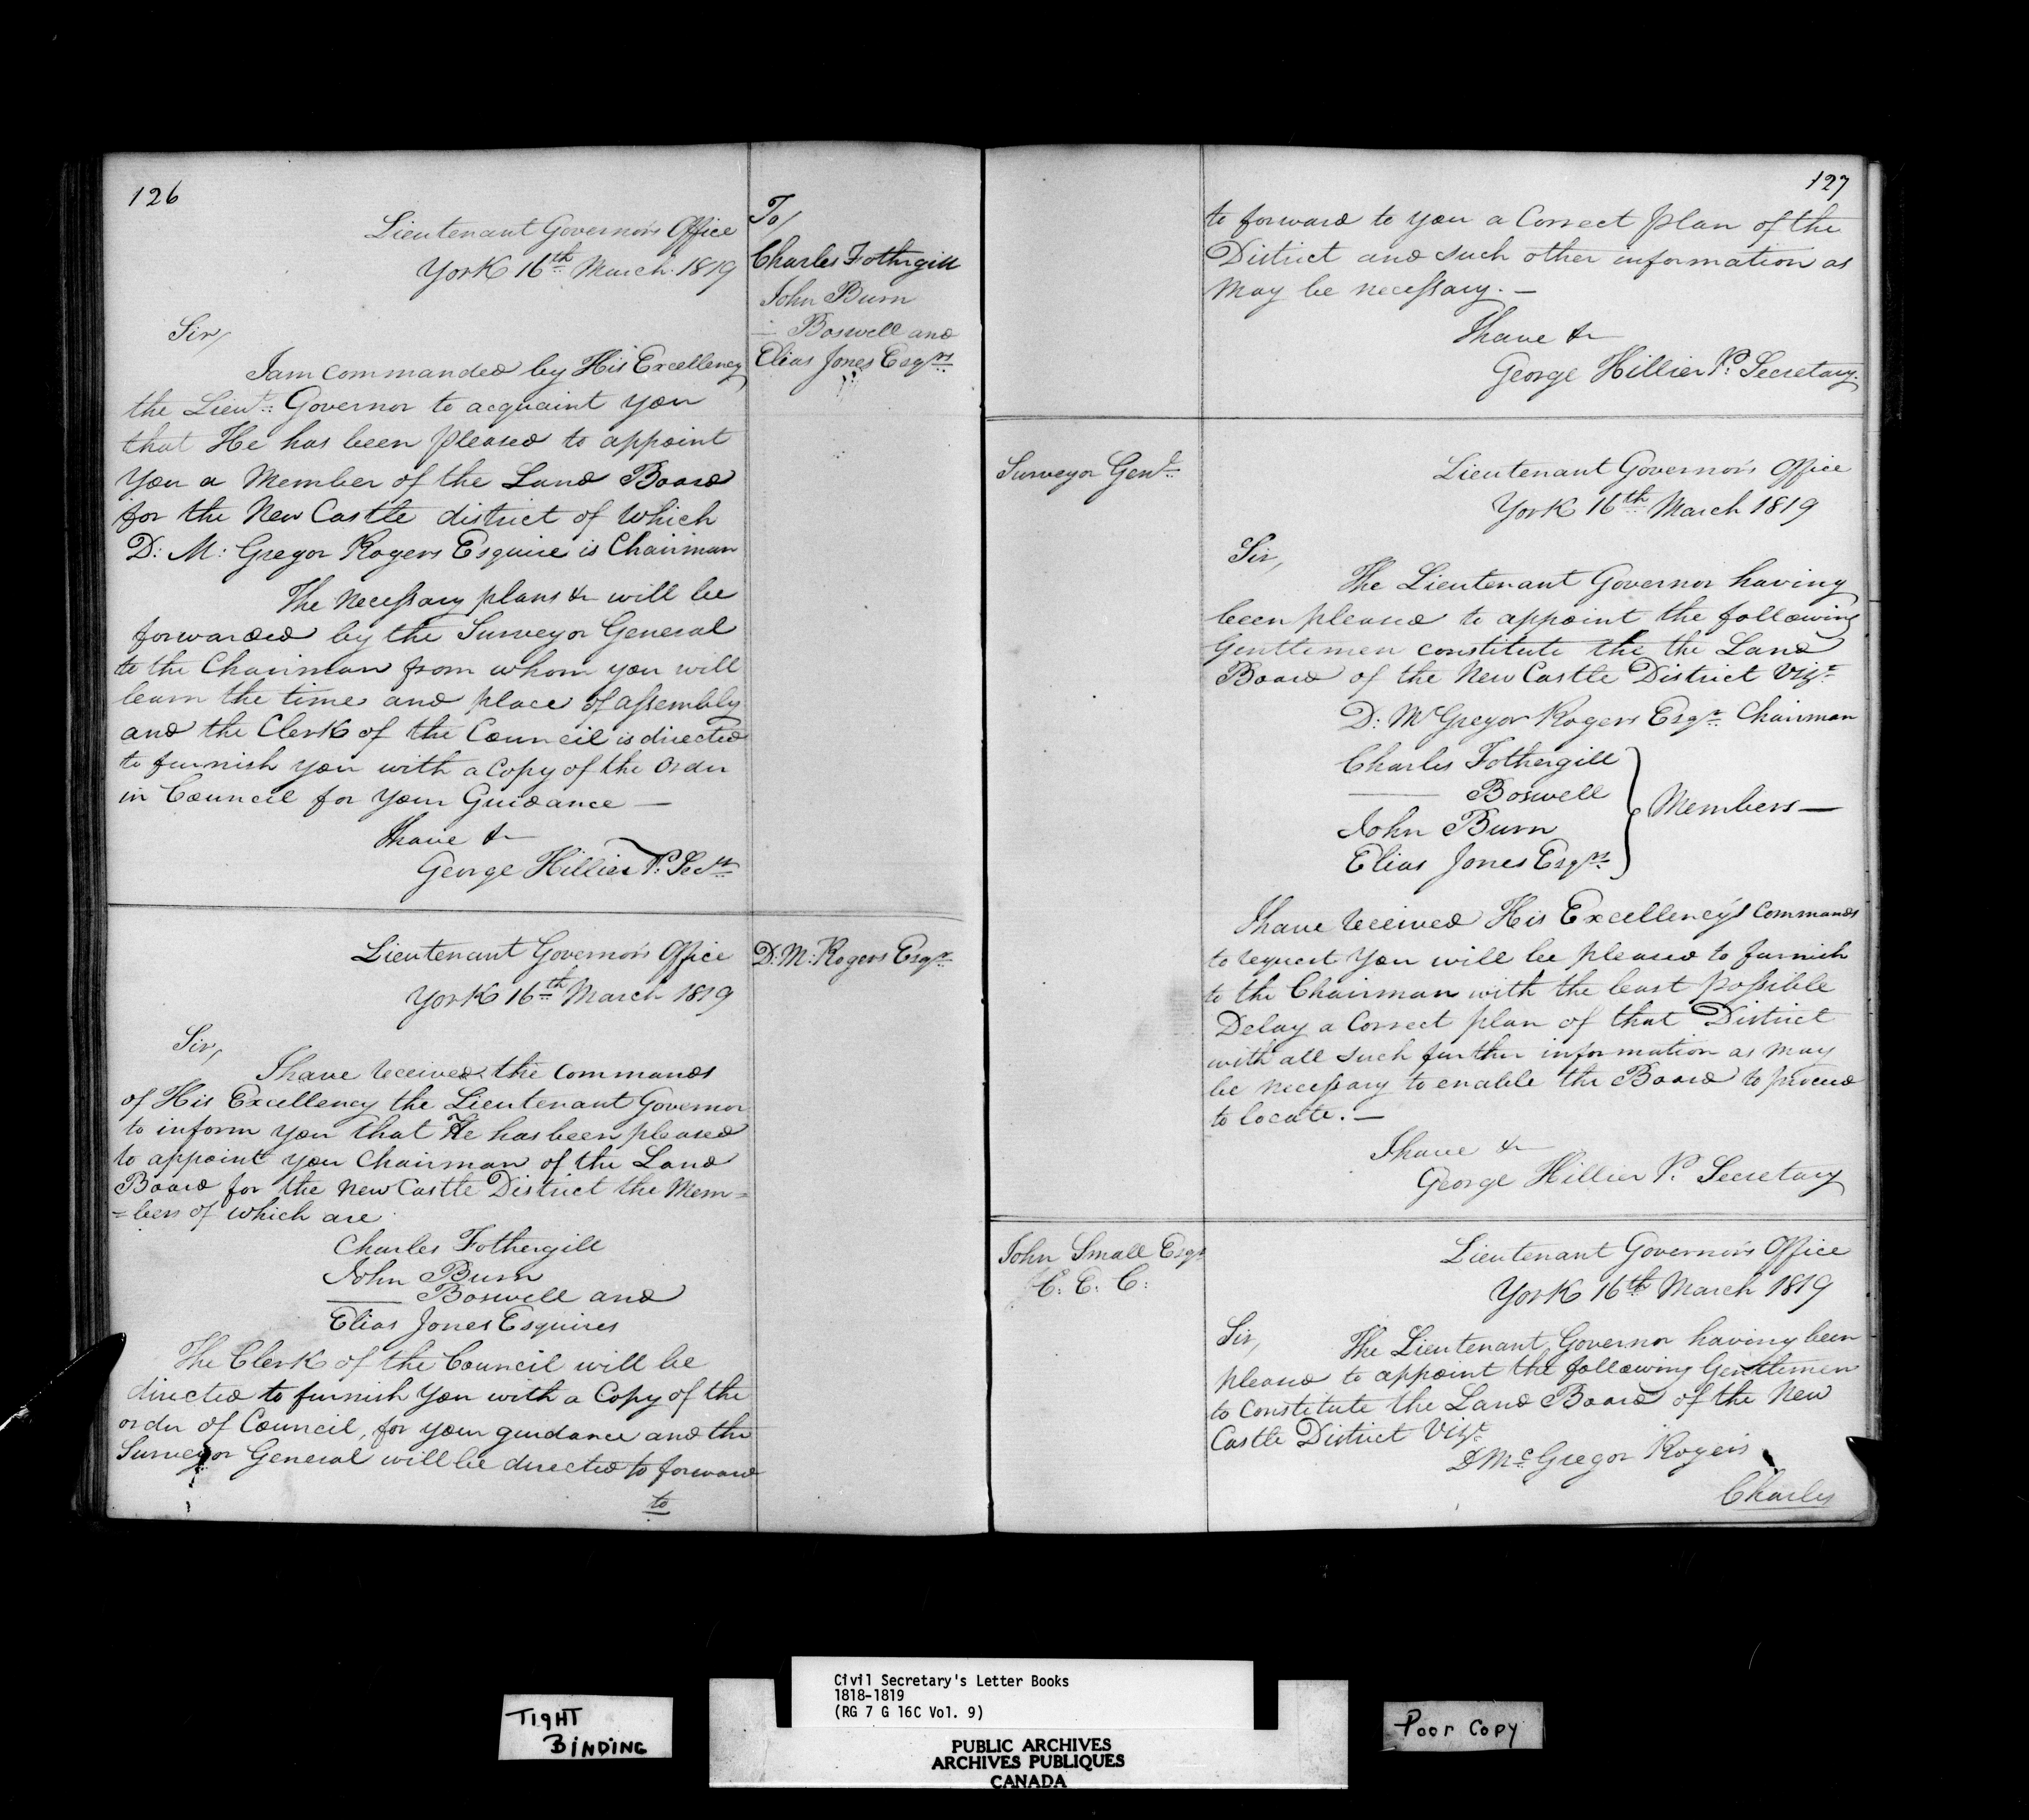 126
Lieutenant Governor's Office
York 16th March 1819
To/
Charles Fothergill
John Burn
— Boswell and
Elias Jones Esqrs
Sir/
I am Commanded by His Excellency
the Lieut: Governor to acquaint you
that He has been pleased to appoint
you a Member of the Land Board
for the New Castle district of which
D: M: Gregor Rogers Esquire is Chairman
The Necessary plans &c will be
forwarded by the Surveyor General
to the Chairman from whom you will
learn the time and place of assembly
and the Clerk of the Council is directed
to furnish you with a Copy of the Order
in Council for your Guidance —
I have &c
George Hillier P. Secy
Lieutenant Governor's Office
York 16th March 1819
D: M: Rogers Esqr
Sir,
I have received the Commands
of His Excellency the Lieutenant Governor
to inform you that He has been pleased
to appoint you Chairman of the Land
Board for the New Castle District the Mem=
=bers of which are
Charles Fothergill
John Burn
— Boswell and
Elias Jones Esquires
The Clerk of the Council will be
directed to furnish you with a Copy of the
order of Council, for your guidance and the
Surveyor General will be directed to forward
to
127
to forward to you a Correct plan of the
District and such other information as
may be necessary. —
I have &c
George Hillier P. Secretary.
Surveyor Genl
Lieutenant Governor's Office
York 16th March 1819
Sir,
The Lieutenant Governor having
been pleased to appoint the following
Gentlemen constitute the the Land
Board of the New Castle District Vizt
D: McGregor Rogers Esqr Chairman
Charles Fothergill
— Boswell
John Burn
Elias Jones Esqrs
Members —
I have received His Excellency's Commands
to request you will be pleased to furnish
to the Chairman with the least possible
Delay a Correct plan of that District
with all such further information as may
be necessary to enable the Board to proceed
to locate. —
I have &c
George Hillier P. Secretary
John Small Esqr
C. E. C:
Lieutenant Governor's Office
York 16th March 1819
Sir,
The Lieutenant Governor having been
pleased to appoint the following Gentlemen
to Constitute the Land Board of the New
Castle District Vizt
D McGregor Rogers
Charles
TIGHT
BINDING
Civil Secretary's Letter Books
1818-1819
(RG 7 G 16C Vol. 9)
PUBLIC ARCHIVES
ARCHIVES PUBLIQUES
CANADA
Poor Copy